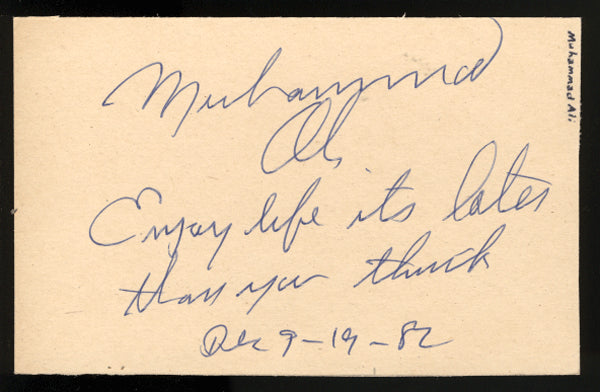 Muhammad
Ali
Enjoy life its later
than you think
Dec 9-19-82
Muhammad Ali